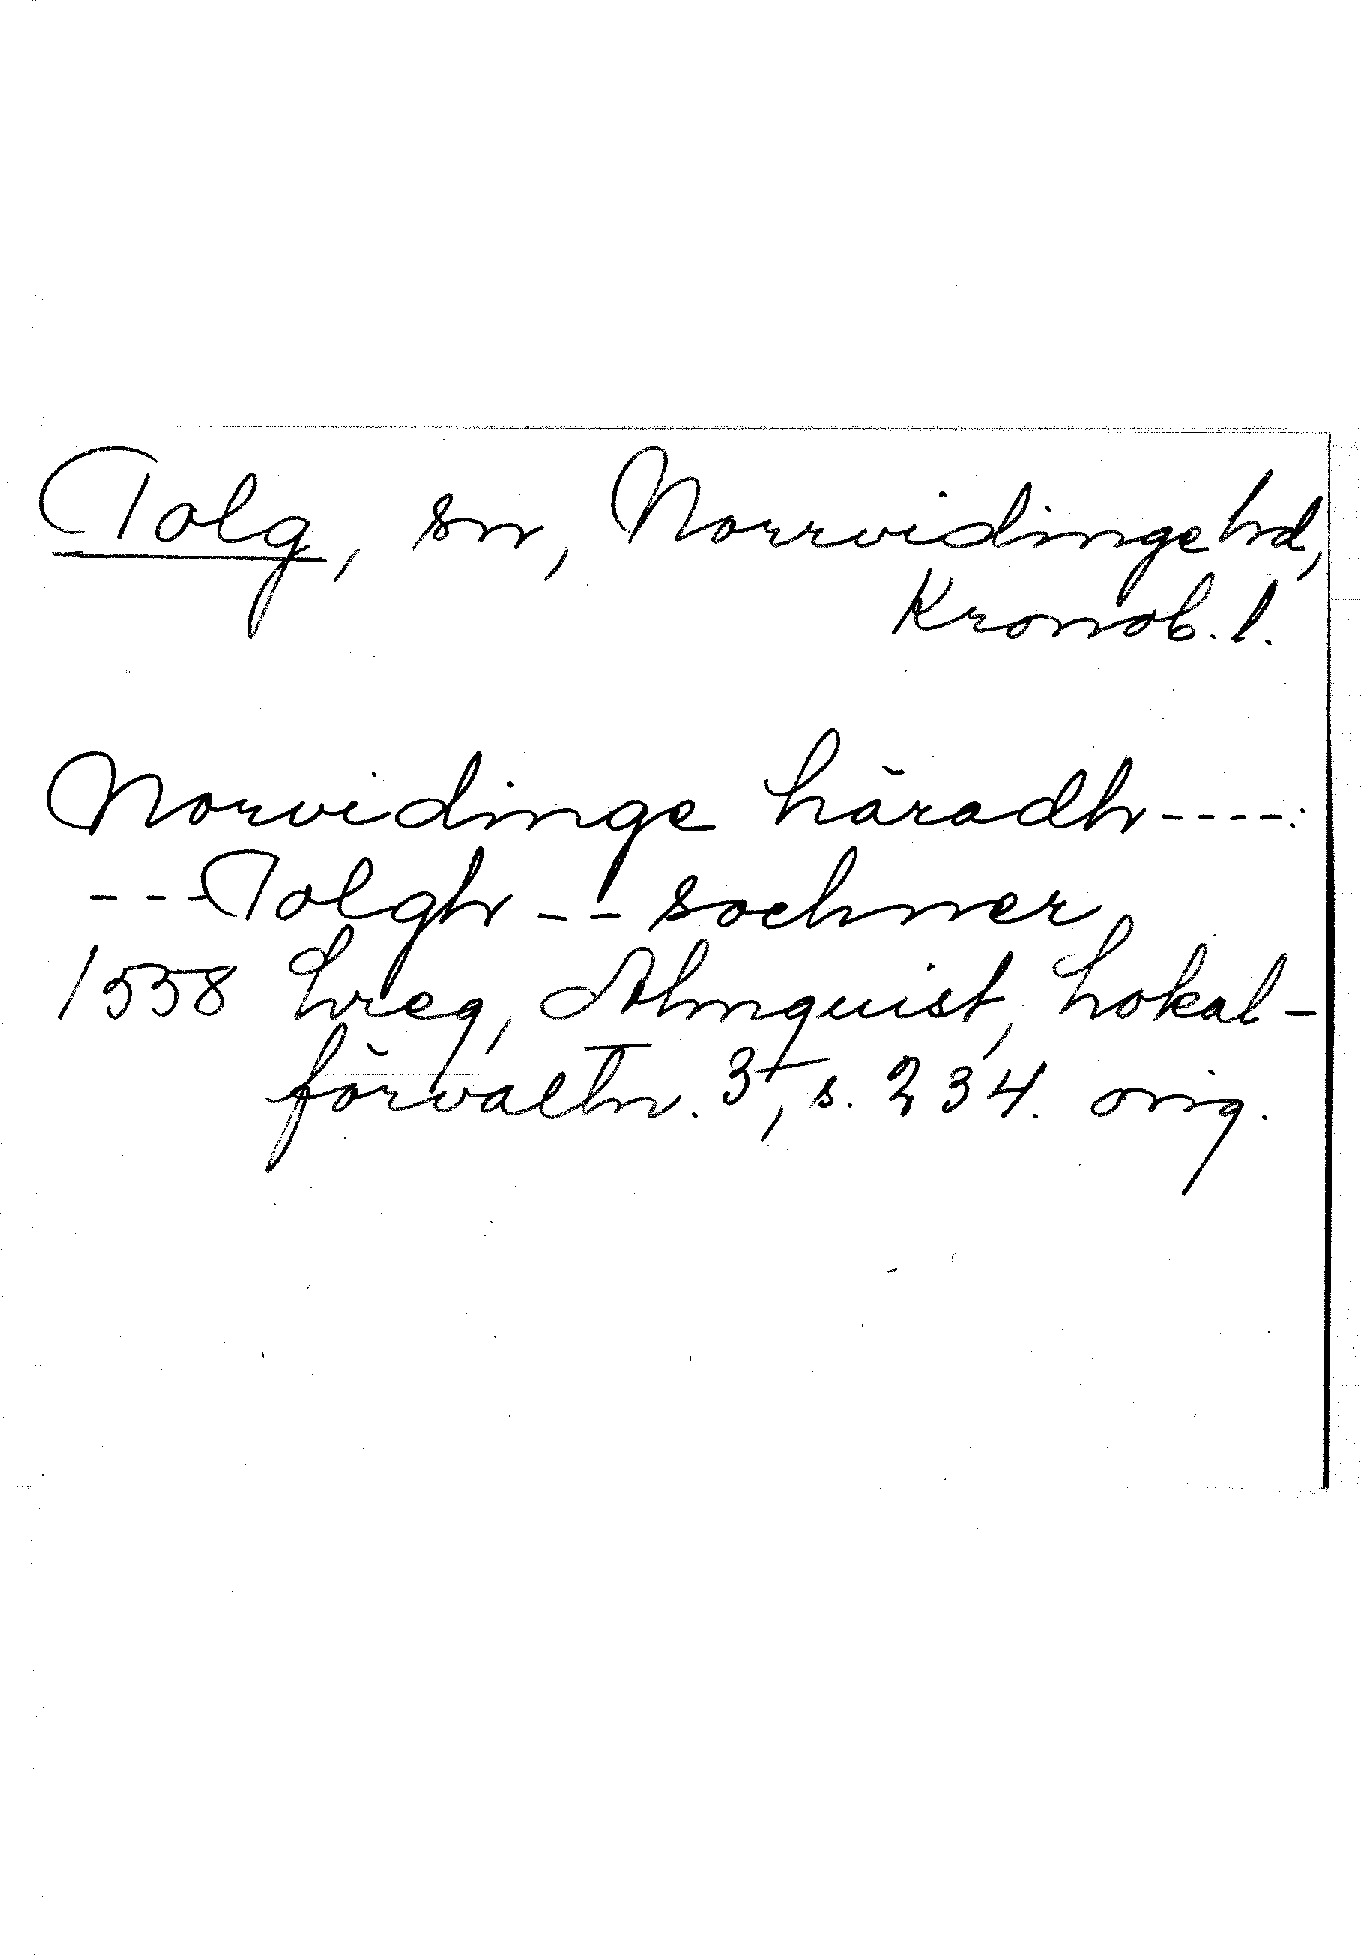 Tolg, sn, Norrvidinge hd,
Kronob. l.
Norvidinge häradh ----:
---Tolgh -- sochner
1558 Lreg, Almquist, Lokal-
förvaltn. 3, s. 234. orig.